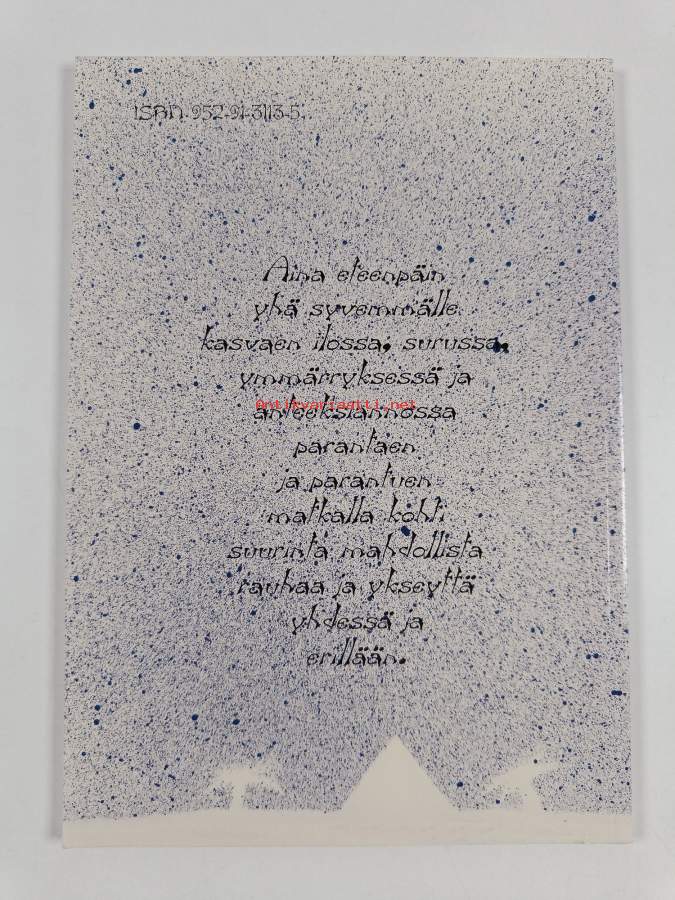 ISBN 952-91-3113-5
Aina eteenpäin
yhä syvemmälle
kasvaen ilossa, surussa,
ymmärryksessä ja
Antikvariaatti.net
anteeksiannossa
parantaen
ja parantuen
matkalla kohti
suurinta mahdollista
rauhaa ja ykseyttä
yhdessä ja
erillään.